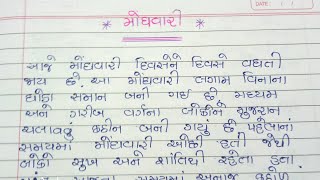 * મોંઘવારી *
આજે મોંઘવારી દિવસેને દિવસે વધતી
જાય છે. આ મોંઘવારી લગામ વિનાના
ઘોડા સમાન બની ગઇ છે. મધ્યમ
અને ગરીબ વર્ગના લોકોને ગુજરાન
ચલાવવુ કઠીન બની ગયુ છે. પહેલાનાં
સમયમાં મોંઘવારી ઓછી હતી જેથી
લોકો સુખ અને શાંતિથી રહેતા હતા.
સમયમાં અનાજ